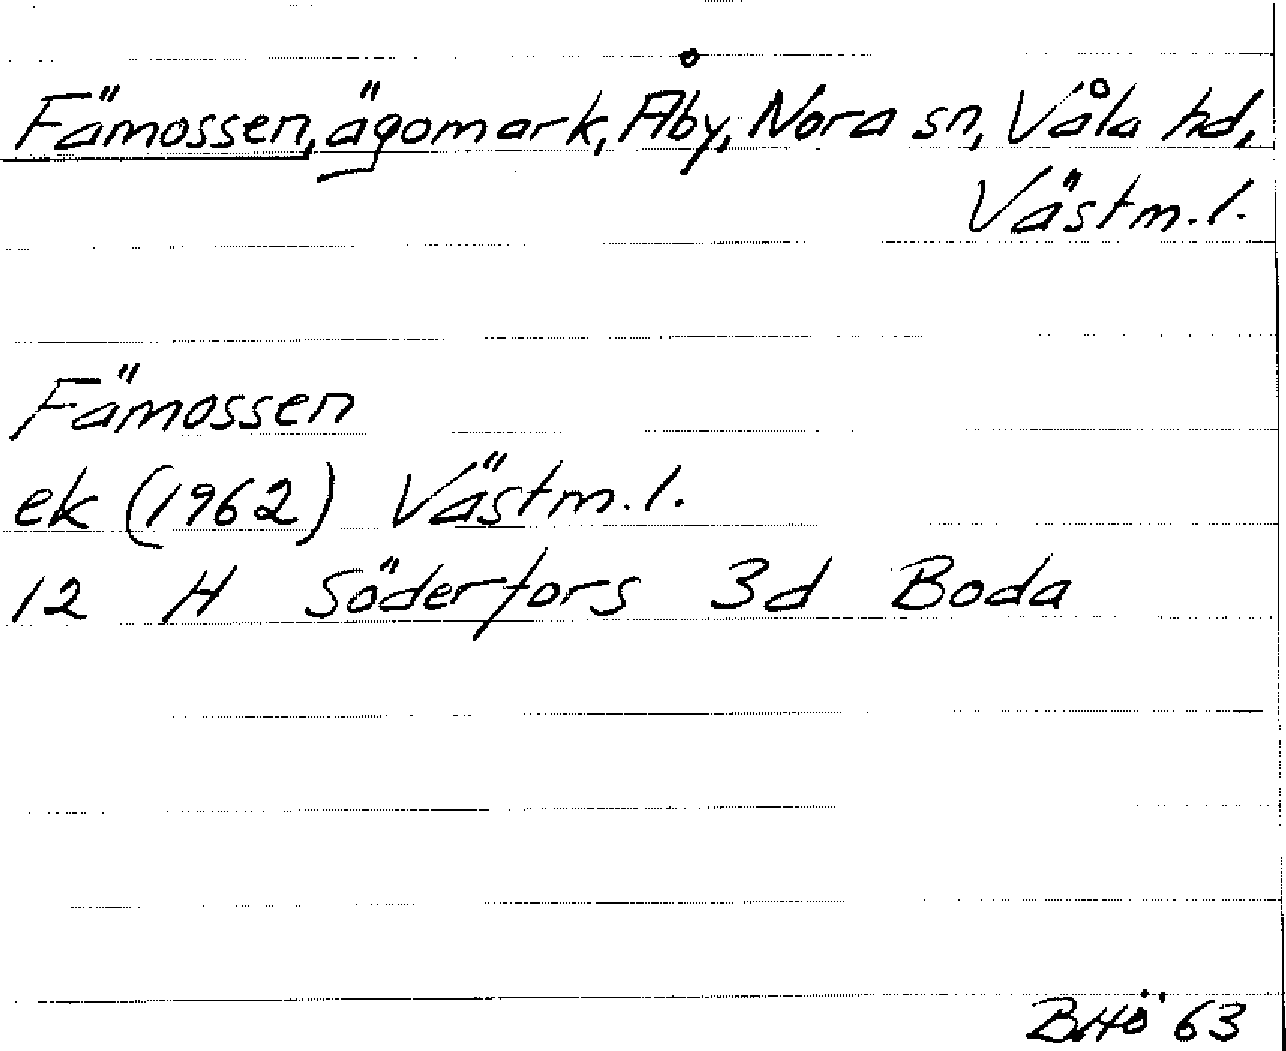 Fämossen, ägomark, Åby, Nora sn, Våla hd,
Västm.l.
Fämossen
ek (1962) Västm.l.
12 H Söderfors 3d Boda
BHö 63